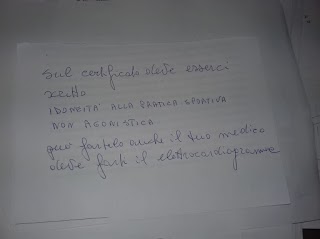 sul certificato deve esserci
scritto
IDONEITÀ ALLA PRATICA SPORTIVA
NON AGONISTICA
può fartelo anche il tuo medico
deve farti il elettrocardiogramma